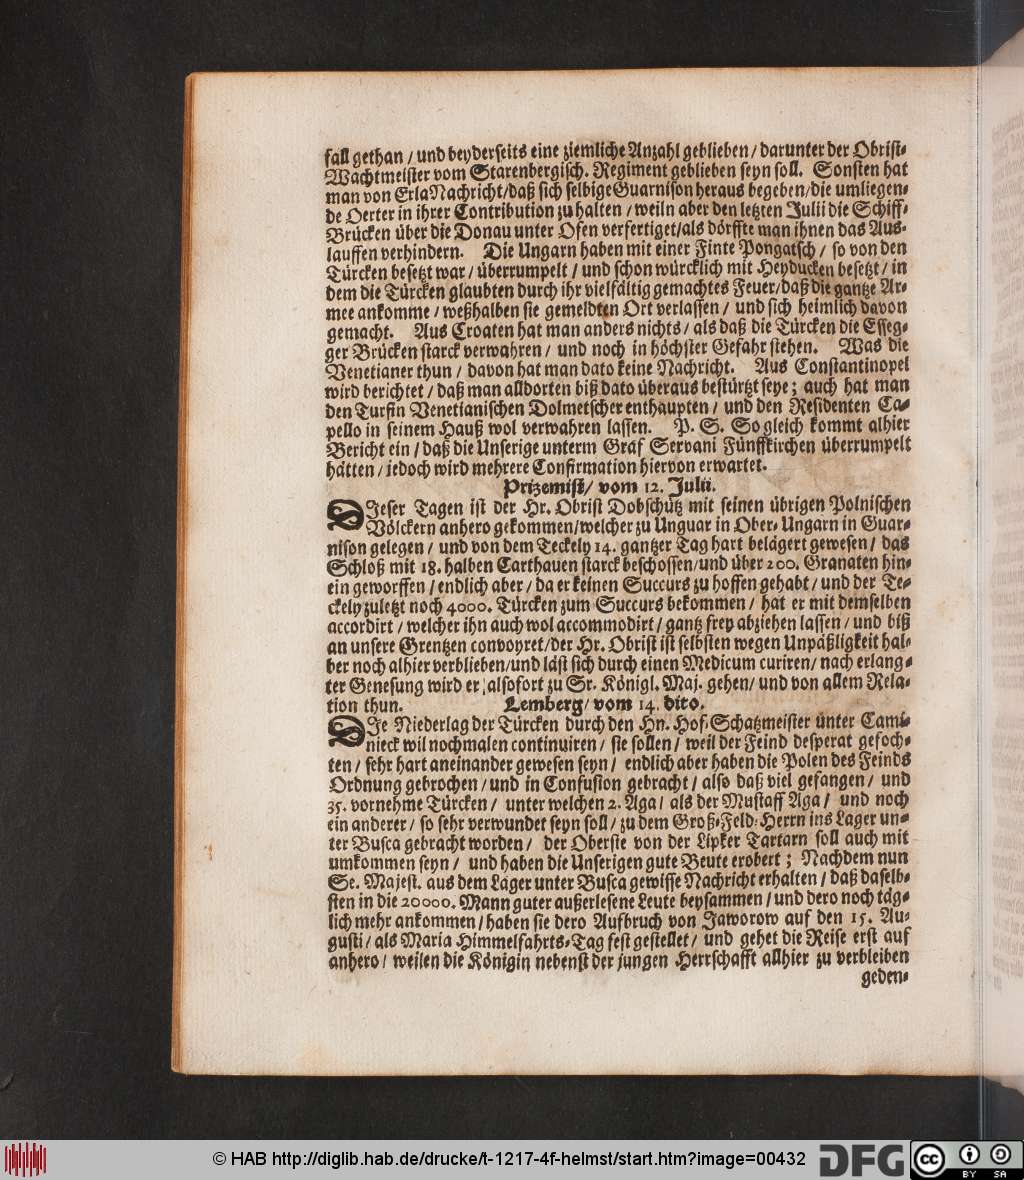 fall gethan / und beyderseits eine ziemliche Anzahl geblieben / darunter der Obrist-
Wachtmeister vom Starenbergisch. Regiment geblieben seyn soll. Sonsten hat
man von Erla Nachricht/daß sich selbige Guarnison heraus begeben/die umliegen-
de Oerter in ihrer Contribution zu halten / weiln aber den letzten Julii die Schiff-
Brücken über die Donau unter Ofen verfertiget/als dörffte man ihnen das Aus-
lauffen verhindern. Die Ungarn haben mit einer Finte Pongatsch / so von den
Türcken besetzt war / überrumpelt / und schon würcklich mit Heyducken besetzt / in
dem die Türcken glaubten durch ihr vielfältig gemachtes Feuer/daß die gantze Ar-
mee ankomme / weßhalben sie gemeldten Ort verlassen / und sich heimlich davon
gemacht. Aus Croaten hat man anders nichts / als daß die Türcken die Esseg-
ger Brücken starck verwahren / und noch in höchster Gefahr stehen. Was die
Venetianer thun / davon hat man dato keine Nachricht. Aus Constantinopel
wird berichtet / daß man alldorten biß dato überaus bestürtzt seye; auch hat man
den Turfin Venetianischen Dolmetscher enthaupten / und den Residenten Ca-
pello in seinem Hauß wol verwahren lassen. P. S. So gleich kommt alhier
Bericht ein / daß die Unserige unterm Graf Servani Fünffkirchen überrumpelt
hätten / jedoch wird mehrere Confirmation hiervon erwartet.
Prizemisl/ vom 12. Julii.
DIeser Tagen ist der Hr. Obrist Dobschütz mit seinen übrigen Polnischen
Völckern anhero gekommen/welcher zu Unguar in Ober-Ungarn in Guar-
nison gelegen / und von dem Teckely 14. gantzer Tag hart belägert gewesen / das
Schloß mit 18. halben Carthauen starck beschossen/und über 200. Granaten hin-
ein geworffen / endlich aber / da er keinen Succurs zu hoffen gehabt / und der Te-
ckely zuletzt noch 4000. Türcken zum Succurs bekommen / hat er mit demselben
accordirt / welcher ihn auch wol accommodirt / gantz frey abziehen lassen / und biß
an unsere Grentzen convoyret/der Hr. Obrist ist selbsten wegen Unpäßligkeit hal-
ber noch alhier verblieben/und läst sich durch einen Medicum curiren/ nach erlang-
ter Genesung wird er alsofort zu Sr. Königl. Maj. gehen/ und von allem Rela-
tion thun. Lemberg/ vom 14. dito.
DIe Niederlag der Türcken durch den Hn. Hof-Schatzmeister unter Cami-
nieck wil nochmalen continuiren / sie sollen / weil der Feind desperat gefoch-
ten / sehr hart aneinander gewesen seyn / endlich aber haben die Polen des Feinds
Ordnung gebrochen / und in Confusion gebracht / also daß viel gefangen / und
35. vornehme Türcken / unter welchen 2. Aga / als der Mustaff Aga / und noch
ein anderer / so sehr verwundet seyn soll / zu dem Groß-Feld-Herrn ins Lager un-
ter Busca gebracht worden / der Oberste von der Lipker Tartarn soll auch mit
umkommen seyn / und haben die Unserigen gute Beute erobert ; Nachdem nun
Se. Majest. aus dem Läger unter Busca gewisse Nachricht erhalten / daß daselb-
sten in die 20000. Mann guter außerlesene Leute beysammen / und dero noch täg-
lich mehr ankommen / haben sie dero Aufbruch von Jaworow auf den 15. Au-
gusti / als Maria Himmelfahrts-Tag fest gestellet / und gehet die Reise erst auf
anhero / weilen die Königin nebenst der jungen Herrschafft allhier zu verbleiben
geden-
© HAB http://diglib.hab.de/drucke/t-1217-4f-helmst/start.htm?image=00432
DFG
cc BY SA